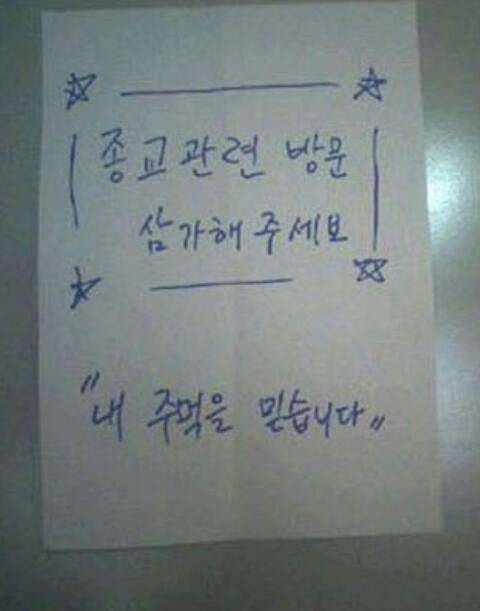 종교관련 방문
삼가해 주세요
"내 주먹을 믿습니다"